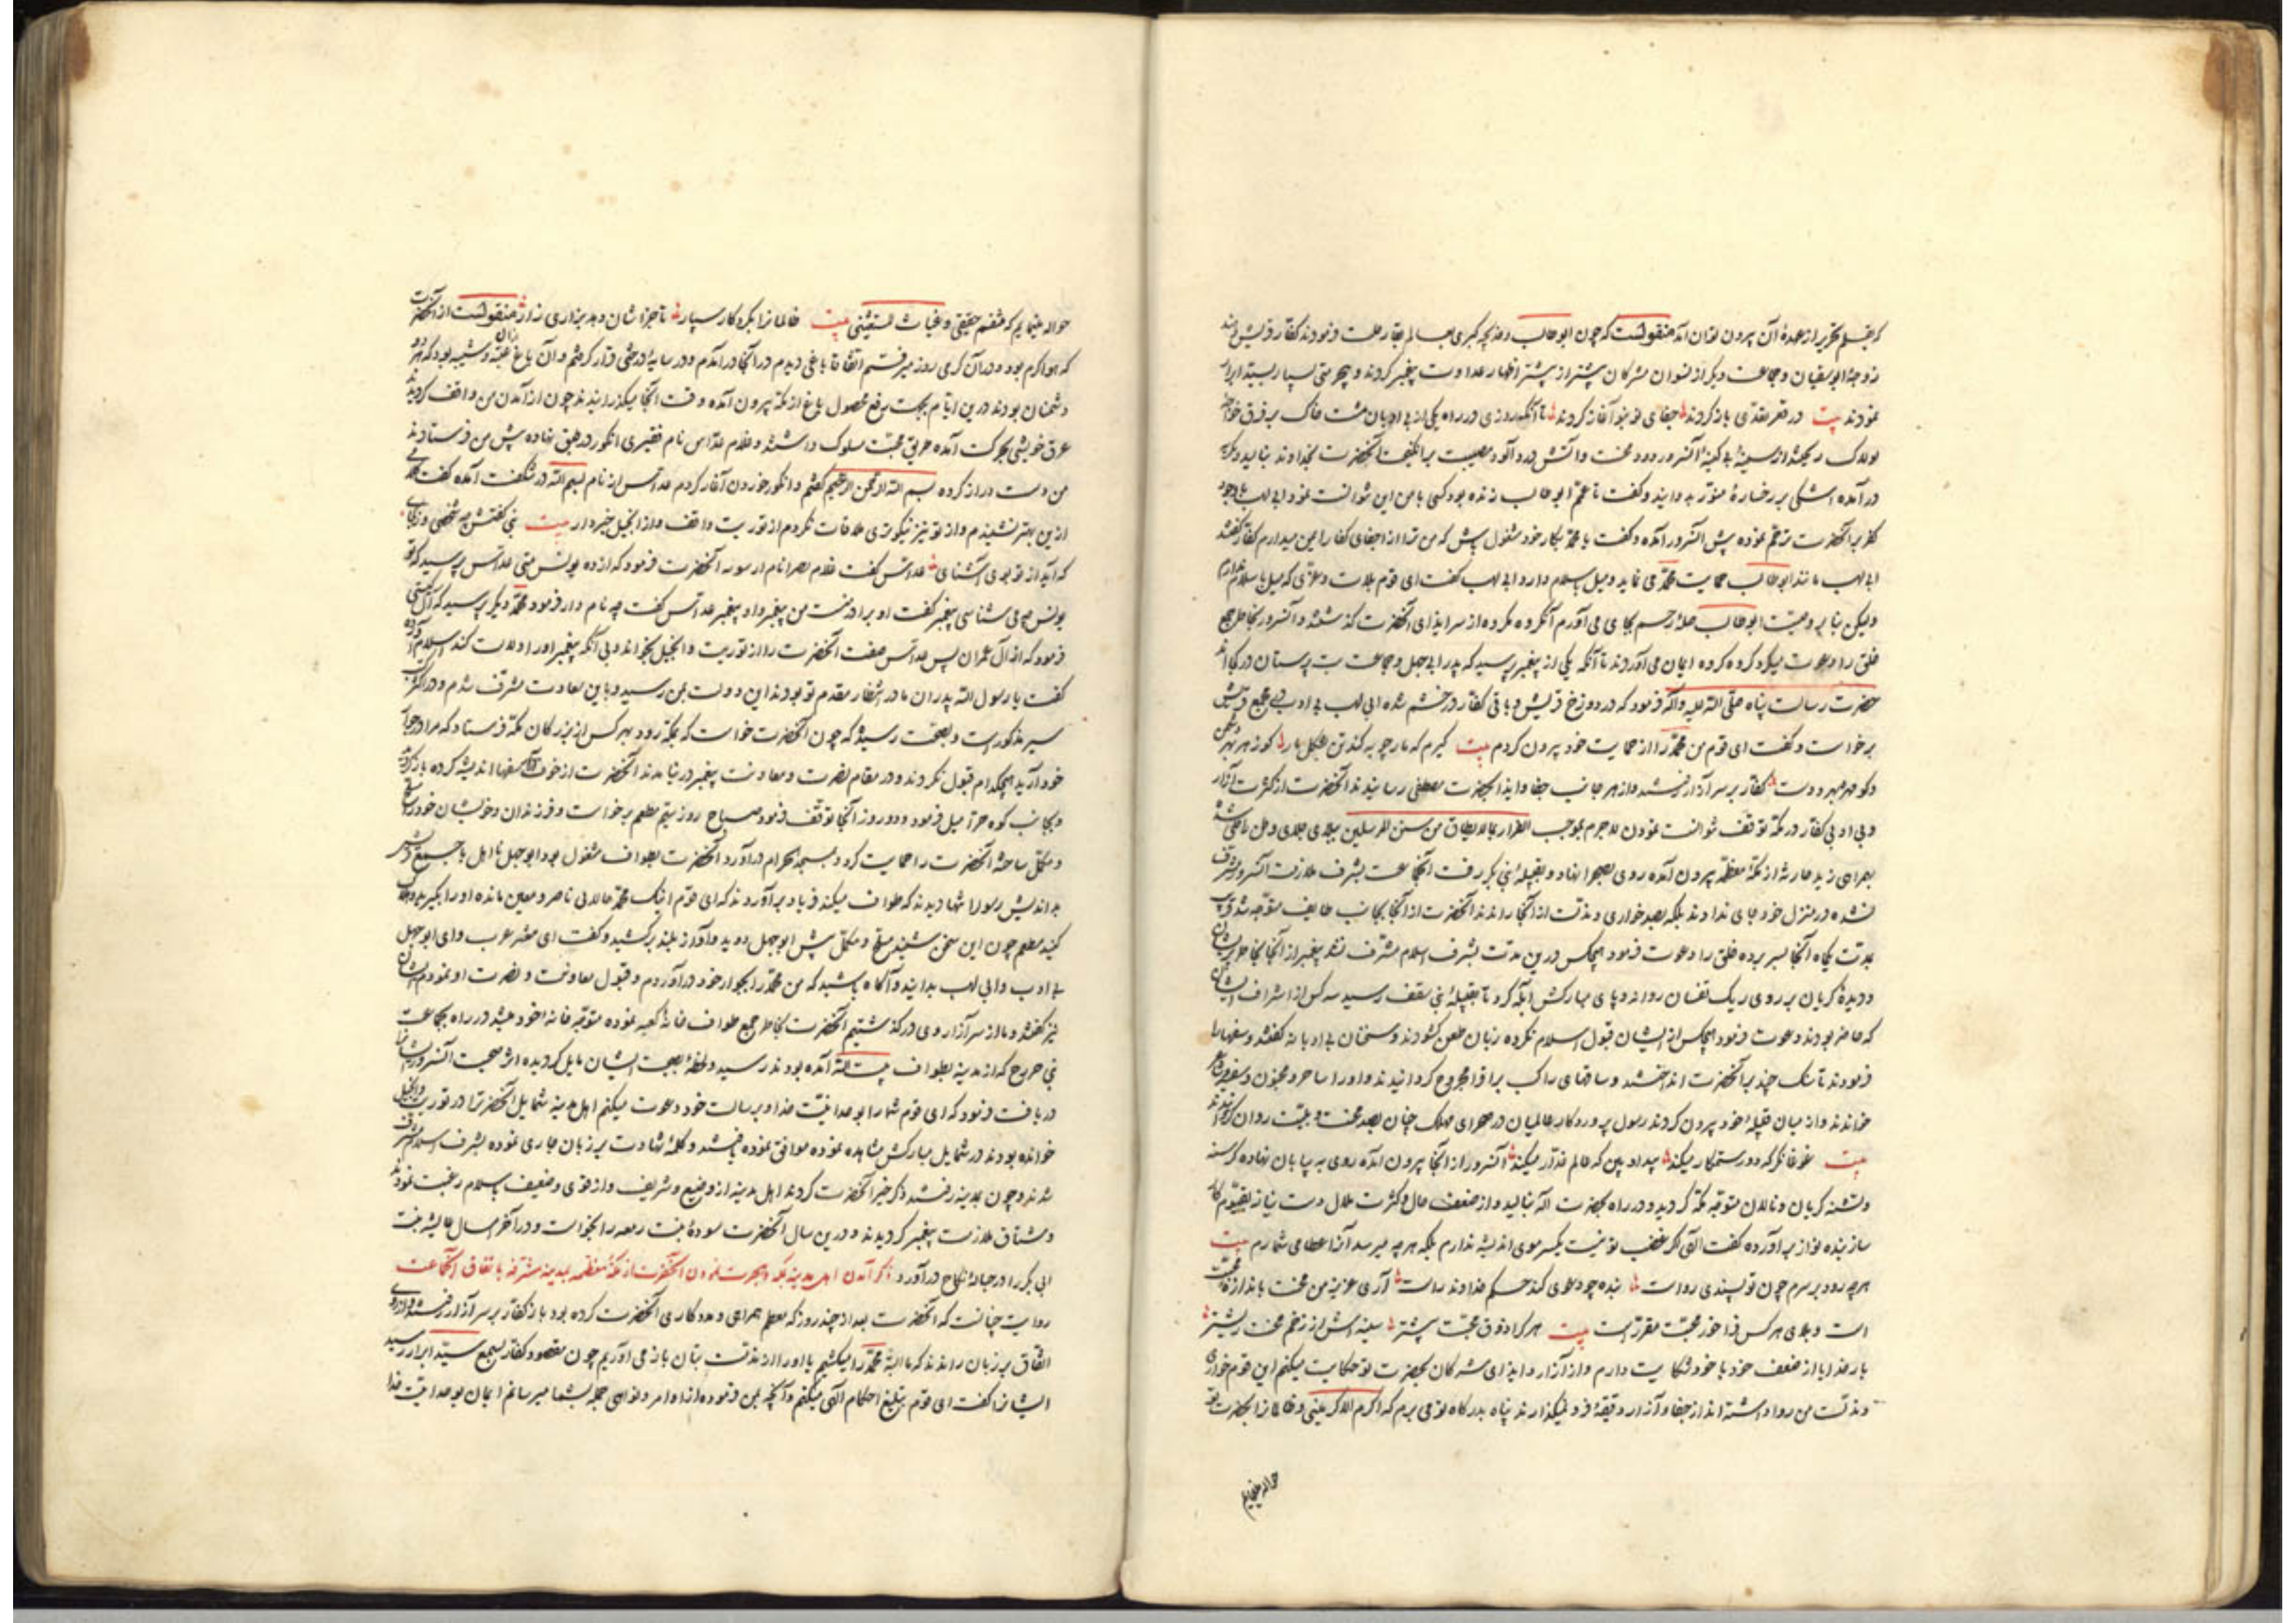 که بقلم تحریر از عهدهٔ آن بیرون توان آمد منقولست که چون ابوطالب و خدیجه کبری بعالم بقا رحلت فرمودند کفار قریش و هند
زوجهٔ ابوسفیان و جماعت دیگر از نسوان مشرکان بیشتر از پیشتر اظهار عداوت پیغمبر کردند و بیحرمتی بسیار بسید ابرار
نمودند بیت در تعدّی باز کردند جفای نو بنو آغاز کردند تا آنکه روزی در راه یکی از بی ادبان مشت خاک بر فرق خواجه
لولاک ریخته از سینهٔ بی کینهٔ آنسرور دود محنت و آتش درد آلود مصیبت برانگیخت آنحضرت بخداوند بنالید و گریه
در آمده اشکی بر رخسارهٔ منوّر بدوانید و گفت تا عمّم ابوطالب زنده بود کسی با من این نتوانست نمود ابی لهب با وجود
کفر بر آنحضرت ترحّم نموده پیش آنسرور آمده و گفت یا محمّد بکار خود مشغول باش که من ترا از جفای کفار ایمن میدارم کفار گفتند
ابی لهب مانند ابوطالب حمایت محمّد می نماید و میل اسلام دارد ابی لهب گفت ای قوم بلات و عزّی که میل باسلام ندارم
ولیکن بنابر وصیّت ابوطالب صلهٔ رحم بجای می آورم آنگروه مکروه از سر ایذای آنحضرت گذشتند و آنسرور بخاطر جمع
خلق را دعوت میکرد گروه گروه ایمان می آوردند تا آنکه یکی از پیغمبر پرسید که پدر ابی جهل و جماعت بت پرستان در کجااند
حضرت رسالت پناه صلّی الله علیه وآله فرمود که در دوزخ قریش و باقی کفار در خشم شده ابی لهب بی ادب در مجمع قریش
برخواست و گفت ای قوم من محمّد را از حمایت خود بیرون کردم بیت گیرم که مارچوبه کند تن بشکل مار کو زهر بهر دشمن
و کو مهره بهر دوست کفار بر سر آزار رفتند و از هر جانب جفا و ایذا بحضرت مصطفی رسانیدند آنحضرت از کثرت آزار
و بی ادبی کفار در مکّه توقف نتوانست نمودن لاجرم بموجب الفرار مما لا یطاق من سنن المرسلین ببلای جلای وطن راضی شده
بهمراهی زید حارثه از مکّهٔ معظّمه بیرون آمده روی بصحرا نهاد و بقبیلهٔ بنی بکر رفت آنجماعت بشرف ملازمت آنسرور مشرف
نشده در منزل خود جای ندادند بلکه بصد خواری و مذلت از آنجا راندند آنحضرت از آنجا بجانب طایف متوجه شد قریب
بمدّت یکماه آنجا بسر برده خلق را دعوت فرمود هیچکس درین مدّت بشرف اسلام مشرّف نشد پیغمبر از آنجا بخاطر پریشان
و دیدهٔ گریان بر روی ریک تفتان روان و پای مبارکش آبله کرد تا بقبیلهٔ بنی سقف رسید سه کس از اشراف ایشان
که حاضر بودند دعوت فرمود هیچکس از ایشان قبول اسلام نکرده زبان طعن گشودند و سخنان بی ادبانه گفتند و سفها را
فرمودند تا سنک چند بر آنحضرت انداختند و ساقهای راکب براق را مجروح گردانیدند و او را ساحر و مجنون و مفتری شاعر
خواندند و از میان قبیلهٔ خود بیرون کردند رسول پروردگار عالمیان در صحرای مهلک چنان بصد محنت و بلیّت روان گردیدند
بیت غوغا نکر که دور ستمکار میکند بیداد بین که عالم غدّار میکند آنسرور از آنجا بیرون آمده روی به بیابان نهاده گرسنه
و تشنه گریان و نالان متوجه مکّه گردید و در راه بحضرت الله بنالید و از ضعف حال و کثرت ملال دست نیاز بقیّوم کار
ساز بنده نواز برآورده گفت الهی اگر غضب تو نیست یکسر موی اندیشه ندارم بلکه هرچه میرسد آنرا عطا می شمارم بیت
هرچه رود بر سرم چون تو پسندی رواست بنده چه دعوی کند حکم خداوند راست آری عزیز من محنت باندازهٔ محبّت
است و بلای هر کس فراخور محبّت مقرّر است بیت هر کرا ذوق محبّت بیشتر سینه اش از زخم محنت ریشتر
بار خدایا از ضعف خود با خود شکایت دارم و از آزار و ایذای مشرکان بحضرت تو حکایت میکنم این قوم خواری
و مذلّت من روا داشته اند از جفا و آزار دقیقهٔ فرو نمیگذارند پناه بدرگاه تو می برم که اکرم الاکرمینی و ظالمانرا بحضرت تو
حواله مینمایم
حواله مینمایم که منتقم حقیقی و غیاث المستغیثینی بیت ظالمانرا بکردگار سپار تا جزاشان دهد بزاری زار منقولست از آنحضرت
که هوا گرم بود و در آن گرمی روز میرفتم اتفاقا باغی دیدم در آنجا درآمدم و در سایهٔ درختی قرار گرفتم و آن باغ از آن عتبه و شیبه بود که هر دو
دشمنان بودند درین ایّام بجهت رفع محصول باغ از مکّه بیرون آمده وقت آنجا میگذرانیدند چون از آمدن من واقف گردیدند
عرق خویشی بحرکت آمده طریق محبّت سلوک داشتند و غلام عدّاس نام فقیری انگور در طبق نهاده پیش من فرستادند
من دست دراز کرده بسم الله الرحمن الرحیم گفتم و انگور خوردن آغاز کردم عدّاس از نام بسم الله در شگفت آمده گفت نامی
ازین بهتر نشنیدم و از تو نیز نیکوتری ملاقات نکردم از توریت واقف و از انجیل خبردار بیت نبی گفتش چه شخصی وز کجایی
که آید از تو بوی آشنایی عدّاس گفت غلام نصرانیم آنحضرت فرمود که از ده یونس متی عدّاس پرسید که تو
یونس چه می شناسی پیغمبر گفت او برادر منست من پیغمبر و او پیغمبر عدّاس گفت چه نام داری فرمود محمّد دیگر پرسید که از آل کیستی
فرمود که از آل عمران پس عدّاس صفت آنحضرت را از توریت و انجیل بخواند و بی آنکه پیغمبر او را دلالت کند اسلام آورده
گفت یا رسول الله پدران ما در انتظار مقدم تو بودند این دولت بمن رسید و باین سعادت مشرف شدم و در اکثر کتب
سیر مذکور است و بصحّت رسیده که چون آنحضرت خواست که بمکّه رود بهر کس از بزرگان مکّه فرستاد که مرا در جوار
خود آرید هیچکدام قبول نکردند و در مقام نصرت و معاونت پیغمبر درنیامدند آنحضرت از خوف آن سفها اندیشه کرده باز گردید
و بجانب کوه حرا میل فرمود و دو روز آنجا توقف فرمود صباح روز سیّم مطعم برخواست و فرزندان و خویشان خود را مسلح
و مکمّل ساخته آنحضرت را حمایت کرد و بمسجد الحرام درآورد آنحضرت بطواف مشغول بود ابوجهل نااهل با جمیع قریش
بد اندیش رسول را تنها دیدند که طواف میکند فریاد برآوردند که ای قوم اینک محمّد حالا بی ناصر و معین مانده او را بگیرید و هلاک
کنید مطعم چون این سخن بشنید مسلّح و مکمّل پیش ابوجهل دوید و آواز بلند برکشید و گفت ای معشر عرب و ای ابوجهل
بی ادب و ابی لهب بدانید و آگاه باشید که من محمّد را بجوار خود درآوردم و قبول معاونت و نصرت او نمودم ایشان
نیز گفتند و ما از سر آزار وی درگذشتیم آنحضرت بخاطر جمع طواف خانهٔ کعبه نموده متوجه خانهٔ خود میشد در راه بجماعت
بنی خزرج که از مدینه بطواف بیت الله آمده بودند رسید و لحظهٔ بصحبت ایشان مایل گردیده اثر صحبت آنسرور ایشانرا
دریافت فرمود که ای قوم شما را بوحدانیّت خدا و برسالت خود دعوت میکنم اهل مدینه شمایل آنحضرترا در توریت و انجیل
خوانده بودند در شمایل مبارکش مشاهده نموده موافق نموده یافتند و کلمهٔ شهادت بر زبان جاری نموده بشرف اسلام مشرف
شدند و چون بمدینه رفتند ذکر خیر آنحضرت کردند اهل مدینه از وضیع و شریف و از قوی و ضعیف باسلام رغبت نمودند
و مشتاق ملازمت پیغمبر گردیدند و درین سال آنحضرت سودهٔ بنت زمعه را بخواست و در آخر سال عایشه بنت
ابی بکر را در حبالهٔ نکاح درآورد ذکر آمدن اهل مدینه بمکه و هجرت نمودن آنحضرت از مکّهٔ معظمه بمدینهٔ مشرّفه باتفاق آنجماعت
روایت چنانست که آنحضرت بعد از چند روز که مطعم همراهی و مددکاری آنحضرت کرده بود باز کفار بر سر آزار رفتند و از روی
اتفاق بر زبان راندند که ما البته محمّد را میکشیم یا او را از مذمّت بتان باز می آوریم چون مقصود کفار بسمع سیّد ابرار رسید
ایشانرا گفت ای قوم تبلیغ احکام الهی میکنم و آنچه بمن فرموده از اوامر و نواهی جمله بشما میرسانم ایمان بوحدانیّت خدا